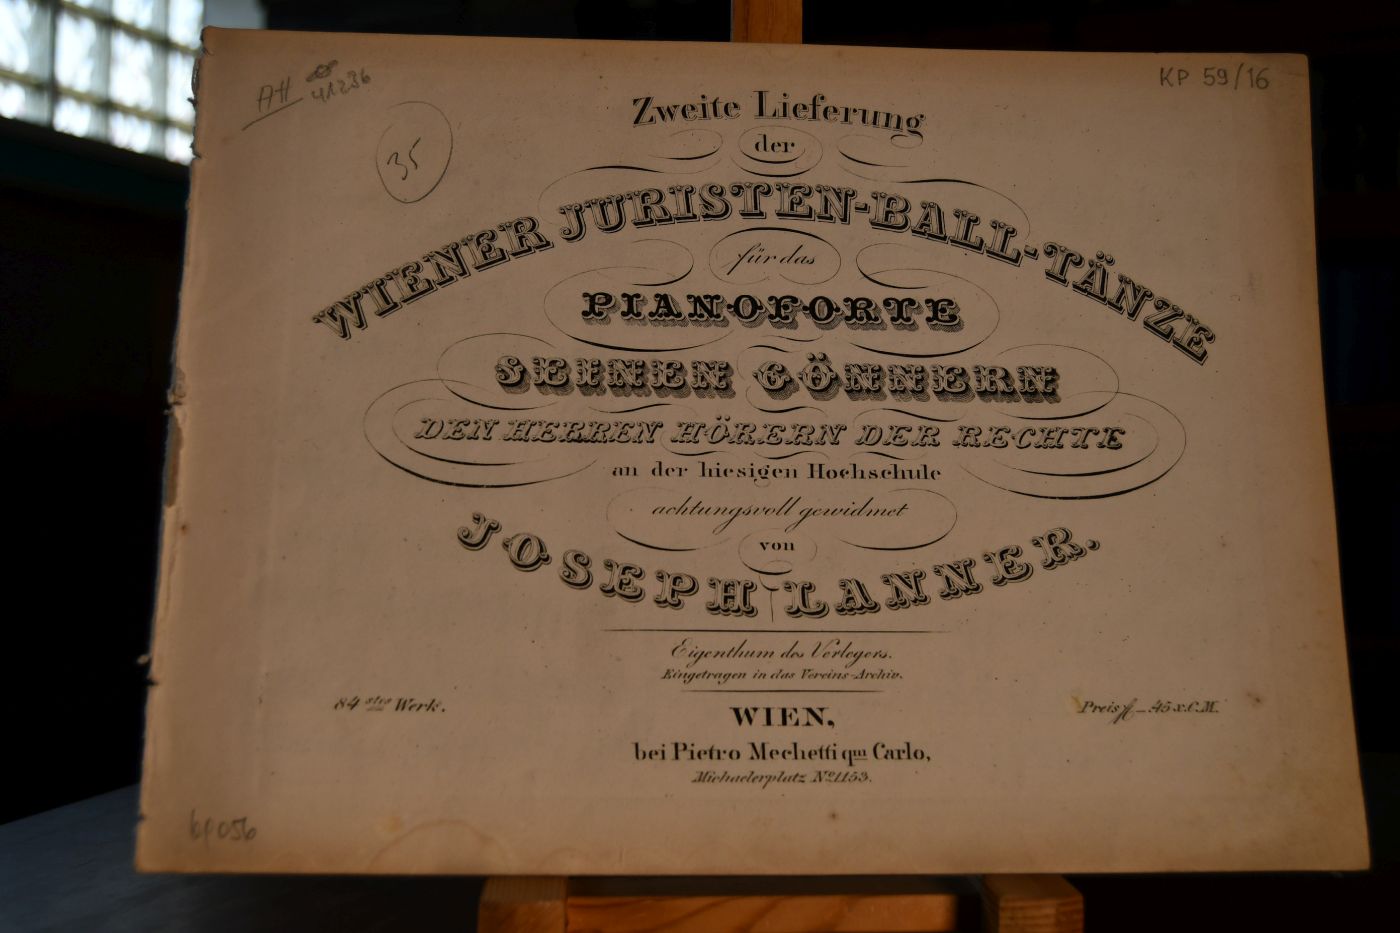 AH 41236
KP 59/16
35
Zweite Lieferung
der
WIENER JURISTEN-BALL-TÄNZE
für das
PIANOFORTE
SEINEN GÖNNERN
DEN HERREN HÖRERN DER RECHTE
an der hiesigen Hochschule
achtungsvoll gewidmet
von
JOSEPH LANNER.
Eigenthum des Verlegers.
Eingetragen in das Vereins-Archiv.
84stes Werk.
Preis f_45 x.C.M.
WIEN,
bei Pietro Mechetti qm Carlo,
Michaelerplatz No 1153.
bp 056